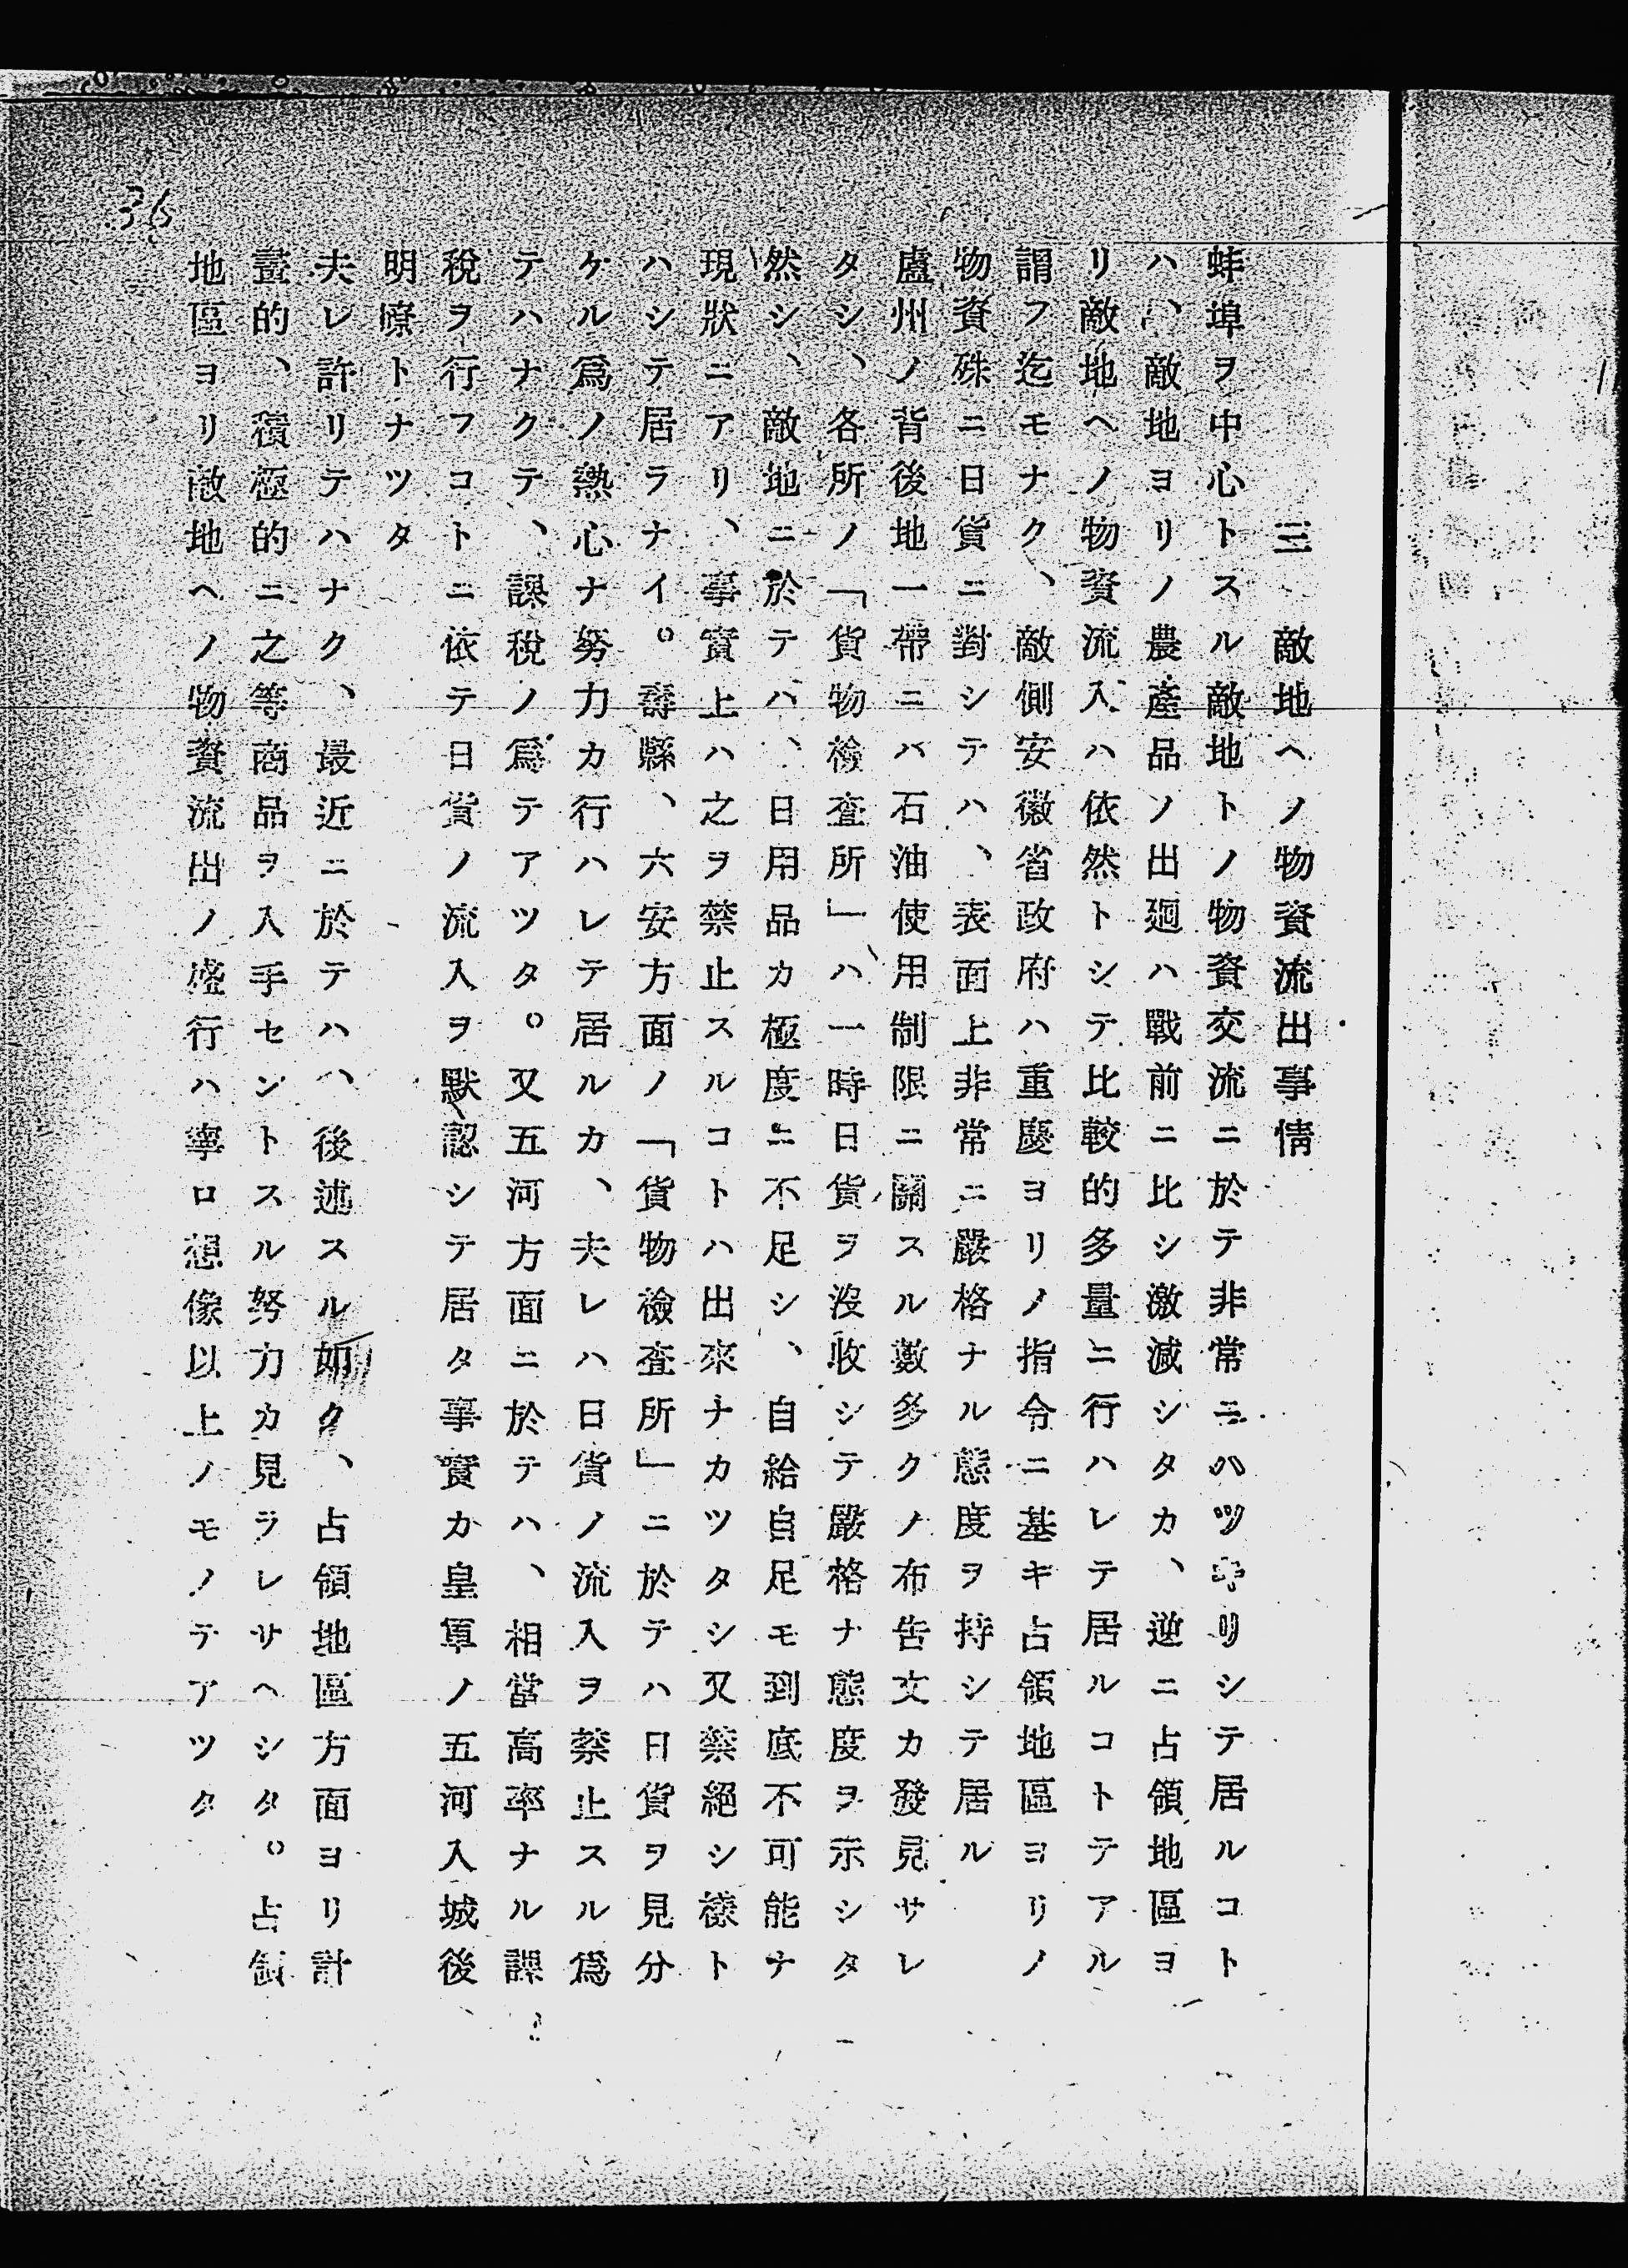 三　敵地ヘノ物資流出事情
蚌埠ヲ中心トスル敵地トノ物資交流ニ於テ非常ニハツキリシテ居ルコト
ハ、敵地ヨリノ農產品ソ出廻ハ戰前ニ比シ激減シタカ、逆ニ占領地區ヨ
リ敵地ヘノ物資流入ハ依然トシテ比較的多量ニ行ハレテ居ルコトテアル
謂フ迄モナク、敵側安徽省政府ハ重慶ヨリノ指令ニ基キ占領地區ヨリノ
物資殊ニ日貨ニ對シテハ、表面上非常ニ嚴格ナル態度ヲ持シテ居ル
盧州ノ背後地一帶ニハ石油使用制限ニ關スル數多クノ布告文カ發見サレ
タシ、各所ノ「貨物檢查所」ハ一時日貨ヲ沒收シテ嚴格ナ態度ヲ示シタ
然シ、敵地ニ於テハ、日用品カ極度ニ不足シ、自給自足モ到底不可能ナ
現狀ニアリ、事實上ハ之ヲ禁止スルコトハ出來ナカツタシ又禁絕シ樣ト
ハシテ居ラナイ。壽縣、六安方面ノ「貨物檢查所」ニ於テハ日貨ヲ見分
ケル爲ノ熱心ナ努力カ行ハレテ居ルカ、夫レハ日貨ノ流入ヲ禁止スル爲
テハナクテ、課稅ノ爲テアツタ。又五河方面ニ於テハ、相當高率ナル課
稅ヲ行フコトニ依テ日貨ノ流入ヲ默認シテ居タ事實カ皇軍ノ五河入城後
明瞭トナツタ
夫レ許リテハナク、最近ニ於テハ、後述スル如ク、占領地區方面ヨリ計
畫的、積極的ニ之等商品ヲ入手セントスル努力カ見ラレサヘシタ。占領
地區ヨリ敵地ヘノ物資流出ノ盛行ハ寧ロ想像以上ノモノテアツタ
36